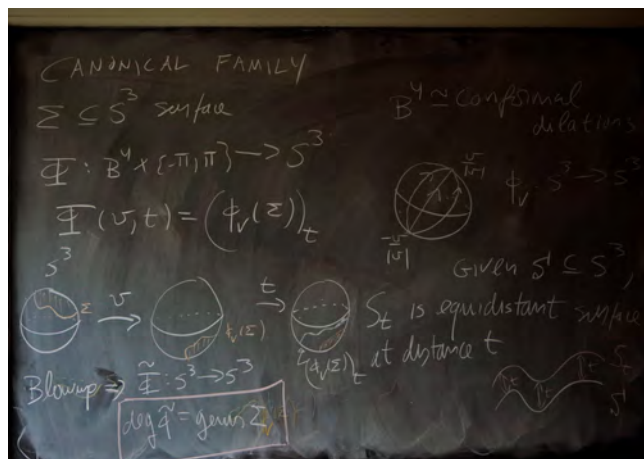 CANONICAL FAMILY
Σ ⊆ S³ surface
Φ : B⁴ × [-π, π] → S³
Φ(v, t) = (ϕ_v(Σ))_t
S³
Σ
v
ϕ_v(Σ)
t
(ϕ_v(Σ))_t
Blowup ⇒ Φ̃ : S³ → S³
deg Φ̃ = genus Σ
B⁴ ≃ Conformal
dilations
v/|v|
-v/|v|
ϕ_v : S³ → S³
Given S ⊆ S³,
S_t is equidistant surface
at distance t
S_t
t
t
t
S